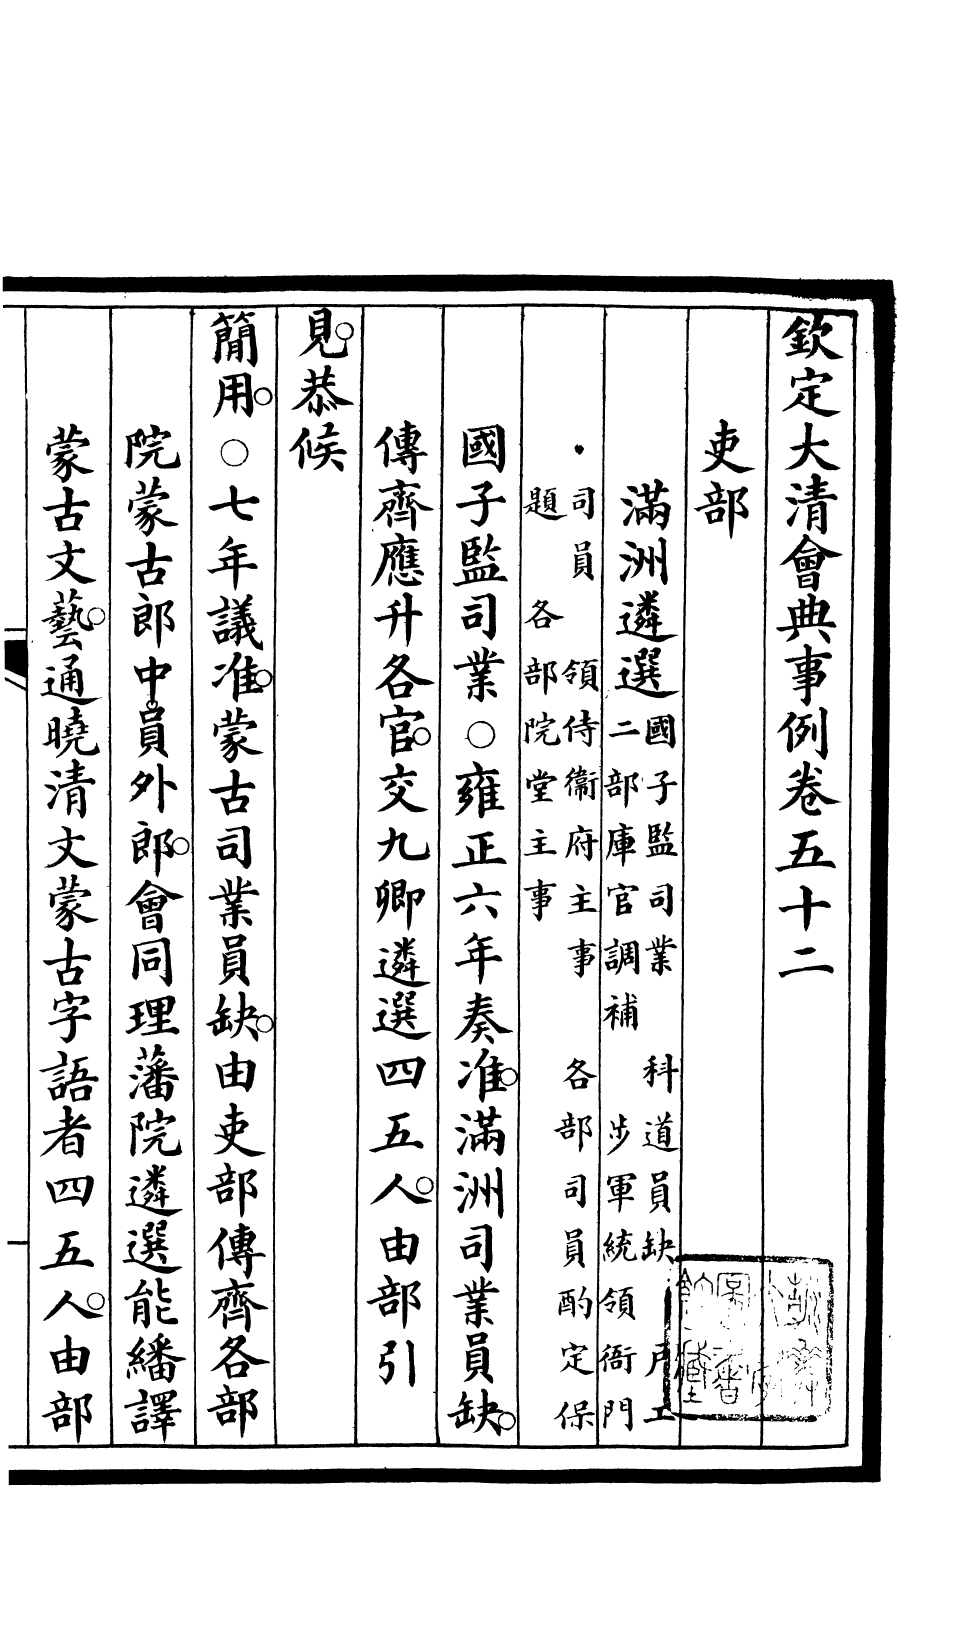 欽定大清會典事例卷五十二
吏部
滿洲遴選 國子監司業 科道員缺 戶工
二部庫官調補 步軍統領衙門
司員 領侍衞府主事 各部司員酌定保
題 各部院堂主事
國子監司業○雍正六年奏准。滿洲司業員缺。
傳齊應升各官。交九卿遴選四五人。由部引
見。恭候
簡用。○七年議准。蒙古司業員缺。由吏部傳齊各部
院蒙古郎中。員外郎。會同理藩院遴選能繙譯
蒙古文藝。通曉清文蒙古字語者四五人。由部